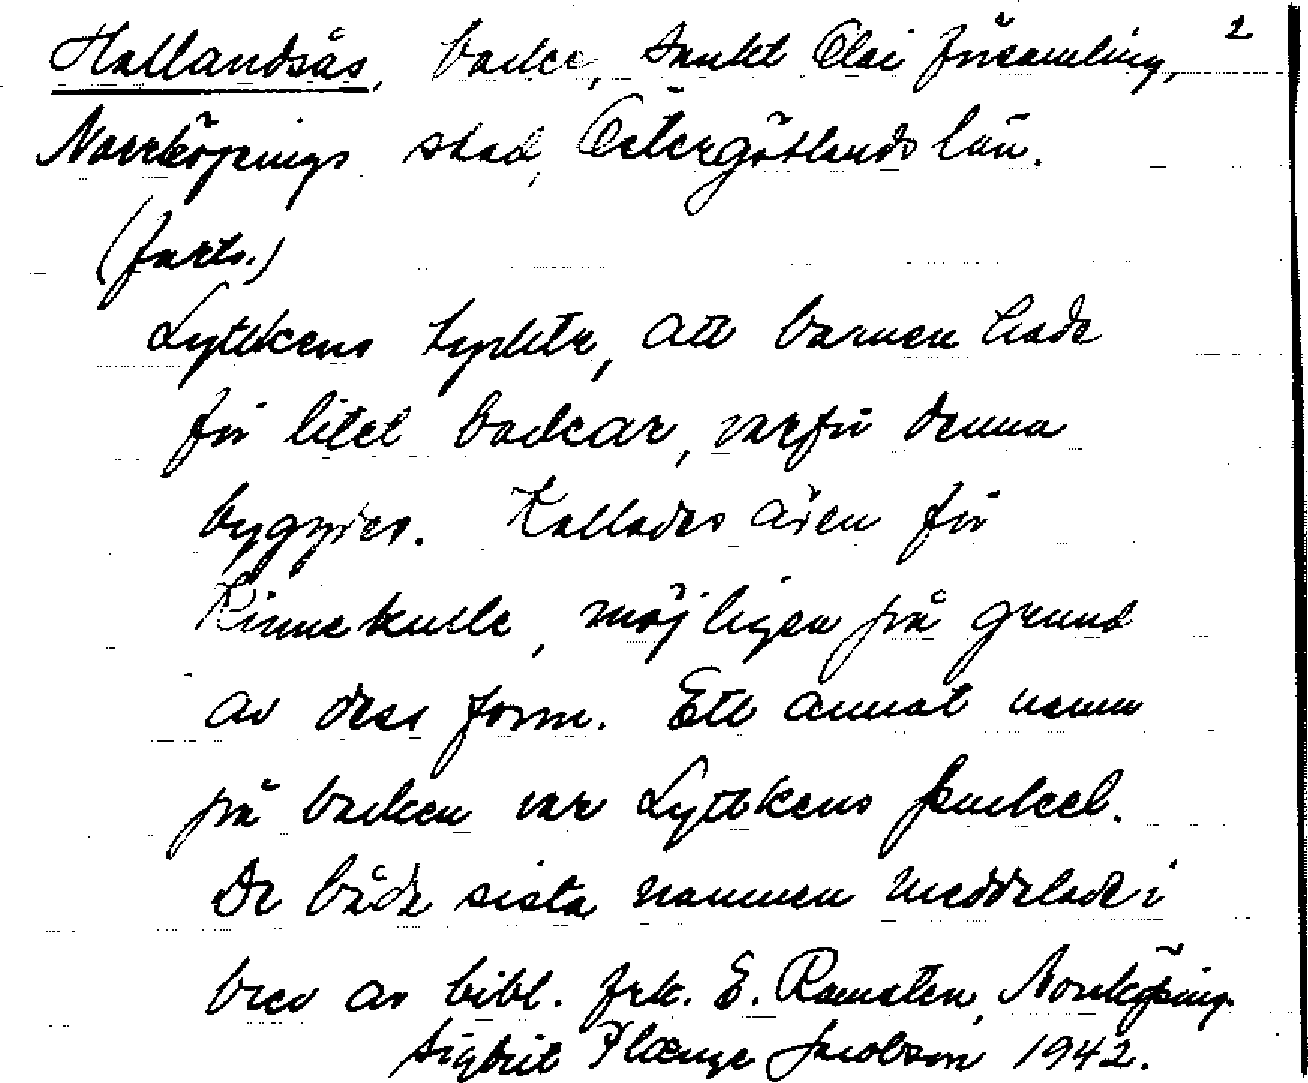 2
Hallandsås, backe, Sankt Olai församling,
Norrköpings stad, Östergötlands län.
(forts.)
Lyttkens tyckte, att barnen hade
för litet backar, varför denna
byggdes. Kallades även för
Kinnekulle, möjligen på grund
av dess form. Ett annat namn
på backen var Lyttkens puckel.
De båda sista namnen meddelade i
brev av bibl. frk. E. Ramsten, Norrköping.
Sigbrit Plænge Jacobson 1942.